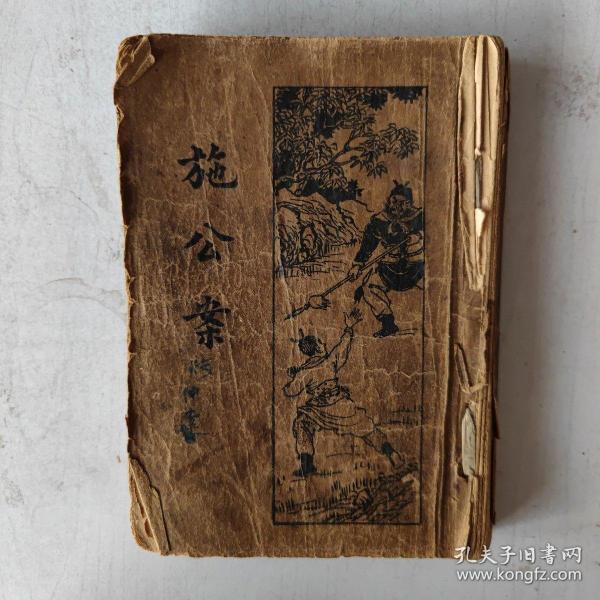 施公案
孔夫子旧書网
www.kongfz.com